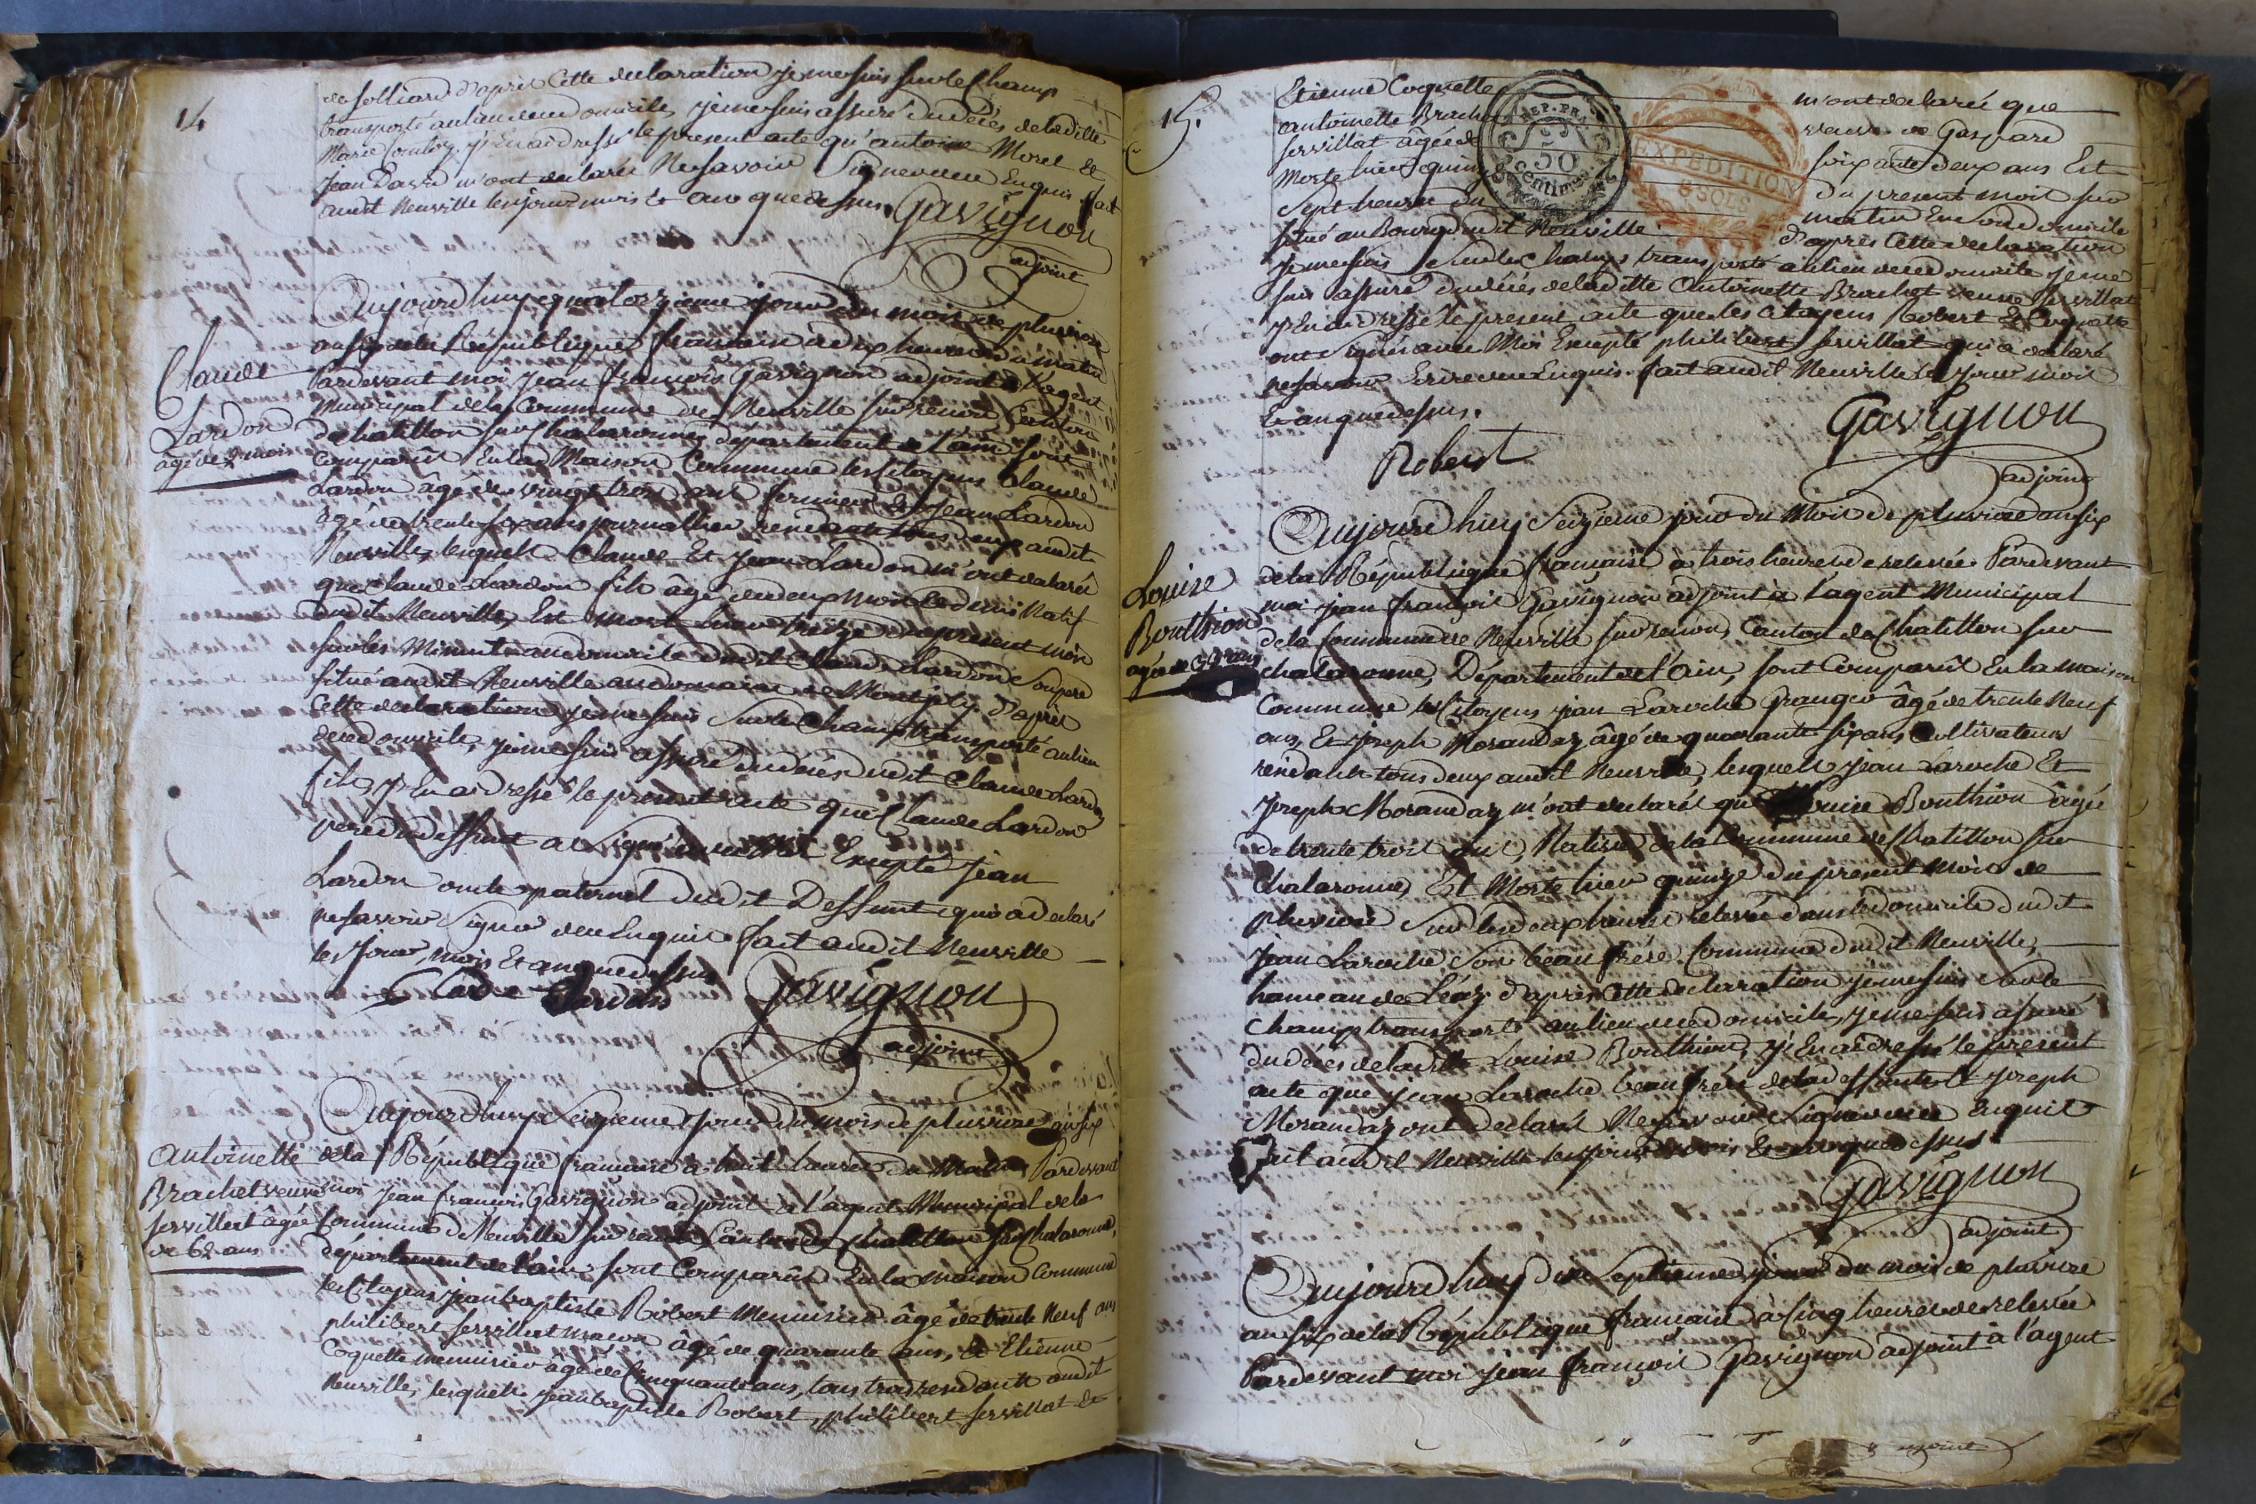 14
de folliard d'après Cette declaration je me suis sur le Champ
transporté au lieu de ce domicile, je me suis assuré du décès de laditte
Marie, j'En ai dressé le present acte qu'antoine Morel &
jean David m'ont declaré Ne savoir Signer de ce Enquis fait
audit Neuville les jour mois & an que dessus. Gavignon
adjoint
Claude
Lardon
âgé de 2 mois
Aujourd'huy quatorzieme jour du mois de pluviose
an six de la République française à dix heures du matin
Pardevant moi Jean françois Gavignon adjoint à l'agent
Municipal de la Commune de Neuville sur renon, Canton
de Chatillon sur Chalaronne, département de l'ain, sont
Comparus En la Maison Commune les Citoyens Claude
Lardon âgé de vingt trois ans fermier & Jean Lardon
âgé de trente six ans journalier, rendants tous deux audit
Neuville, lesquels Claude Et Jean Lardon m'ont declaré
que Claude Lardon fils âgé de deux mois & demi Natif
audit Neuville, Est mort hier treize du present mois
sur les Minuit au domicile dudit Claude Lardon Son pere
situé audit Neuville au domaine de Montiply d'après
Cette declaration je me suis Sur le Champ transporté au lieu
de ce domicile, je me suis assuré du décès dudit Claude Lardon
fils, j'En ai dressé le present acte que Claude Lardon
pere du deffunt a Signé Excepté Jean
Lardon oncle paternel dudit Deffunt qui a declaré
ne savoir Signer de ce Enquis fait audit Neuville
les Jour, mois Et an que dessus
Claude Lardon Gavignon
adjoint
Antoinette
Brachet veuve
servillat âgée
de 62 ans
Aujourd'huy Seizieme Jour du mois de pluviose an six
de la République française à huit heures du Matin Pardevant
moi Jean françois Gavignon adjoint à l'agent Municipal de la
Commune de Neuville sur renon, Canton de Chatillon sur Chalaronne,
département de l'ain, sont Comparus En la maison Commune
les Citoyens jean baptiste Robert Menuisier âgé de trente Neuf ans
philibert servillat macon âgé de quarante ans, & Etienne
Coquette menuisier âgé de Cinquante ans, tous trois rendants audit
Neuville, lesquels jean baptiste Robert, philibert servillat &
15.
Etienne Coquette m'ont declaré que
antoinette Brachet veuve de Gaspard
servillat âgée de soixante deux ans Est
Morte hier quinze du present mois sur
Sept heures du matin En Son domicile
situé au Bourg dudit Neuville d'après Cette declaration
REP. FRA.
50
Centimes
EXPEDITION
8 SOLS
Je me suis Sur le Champ transporté au lieu de ce domicile je me
suis assuré du décès de laditte Antoinette Brachet veuve servillat
j'En ai dressé le present acte que les Citoyens Robert & Coquette
ont signé avec Moi Excepté philibert servillat qui a declaré
ne savoir Ecrire de ce Enquis. fait audit Neuville les jour mois
& an que dessus.
Gavignon
Robert
adjoint
Louise
Bouthion
agée de 33 ans
Aujourd'huy Seizieme jour du Mois de pluviose an six
de la République française à trois heures de relevée Pardevant
moi jean françois Gavignon adjoint à l'agent Municipal
de la Commune de Neuville sur renon, Canton de Chatillon sur
chalaronne, Département de l'Ain, sont Comparus En la maison
Commune les Citoyens jean Laroche granger âgé de trente Neuf
ans, Et Joseph Morandaz âgé de quarante six ans Cultivateurs
résidants tous deux audit Neuville, lesquels jean Laroche Et
Joseph Morandaz m'ont declaré que Louise Bouthion âgée
de trente trois ans, Native de la Commune de Chatillon sur
Chalaronne, Est Morte hier quinze du present mois de
pluviose Sur les deux heures relevée dans le domicile dudit
Jean Laroche Son beau frere, Commune dudit Neuville,
hameau de Léaz d'après Cette declaration je me suis Sur le
Champ transporté au lieu de ce domicile, je me suis assuré
du décès de laditte Louise Bouthion, j'En ai dressé le present
acte que jean Laroche beau frère de la deffunte & Joseph
Morandaz ont declaré Ne savoir Signer de ce Enquis
fait audit Neuville les jour, mois & an que dessus
Gavignon
adjoint
Aujourd'huy dix Septieme jour du mois de pluviose
an six de la République française à Cinq heures de relevée
Pardevant moi jean françois Gavignon adjoint à l'agent